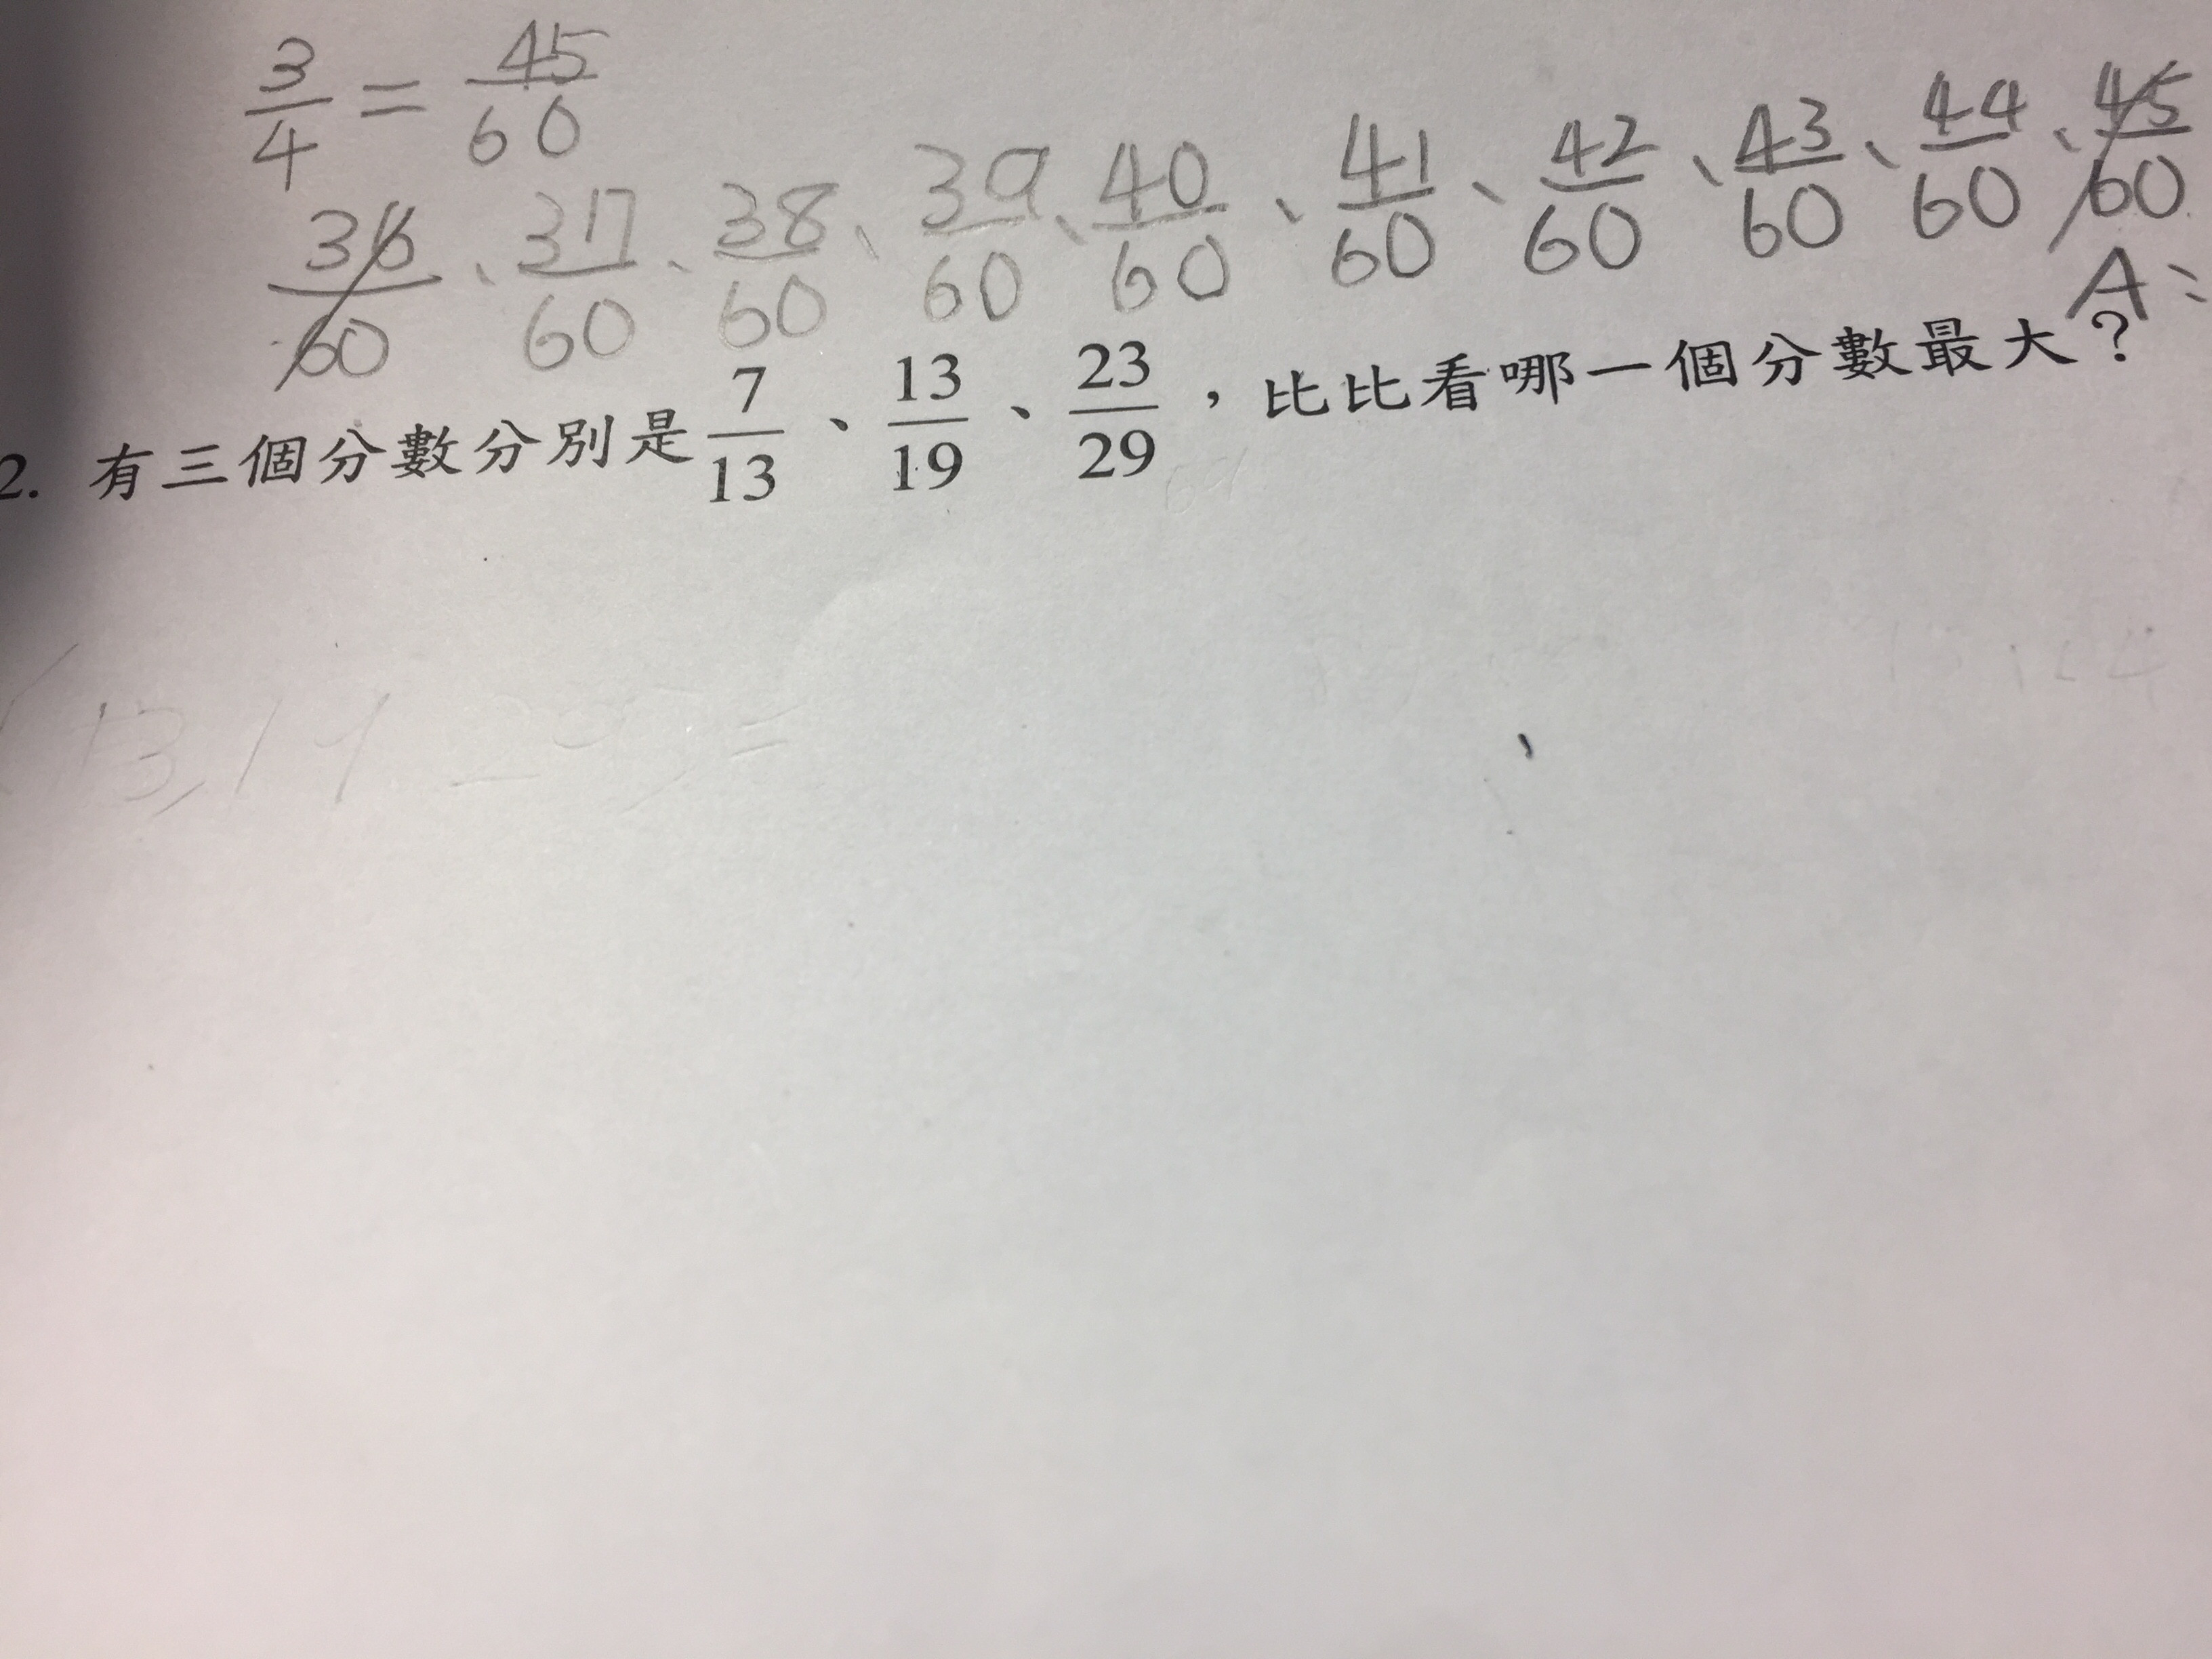 3/4 = 45/60
36/60、37/60、38/60、39/60、40/60、41/60、42/60、43/60、44/60、45/60
A:
2. 有三個分數分別是7/13、13/19、23/29，比比看哪一個分數最大？